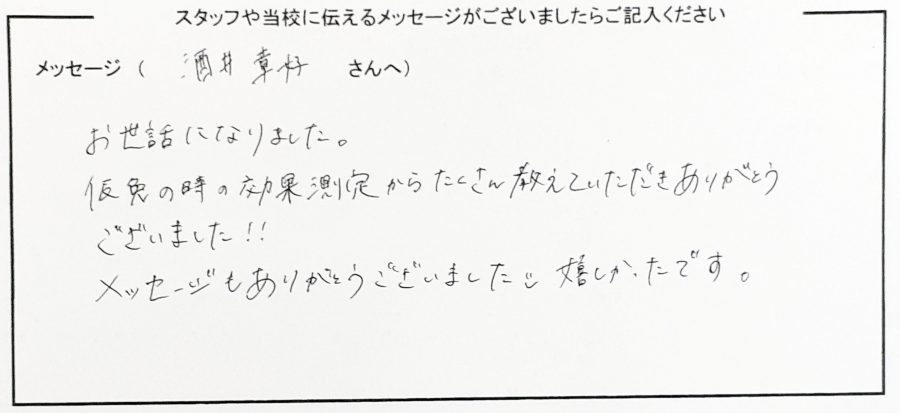 スタッフや当校に伝えるメッセージがございましたらご記入ください
メッセージ ( 酒井 章好 さんへ)
お世話になりました。
仮免の時の効果測定からたくさん教えていただきありがとう
ございました!!
メッセージもありがとうございました 嬉しかったです。